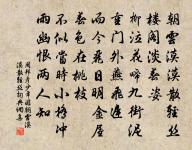 朝雲漠漠散輕絲
樓閣淡春姿
柳泣花啼九街泥
重門外燕飛遲
而今麗日明金屋
春色在桃枝
不似當時小橋衝
雨幽恨兩人知
周邦彥少年游朝雲漠
漠散輕絲詞